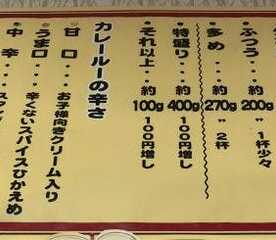 ふつう…約200g 〃1杯少々
多め…約270g 〃2杯
特盛り…約400g 100円増し
それ以上…約100g 100円増し
カレールーの辛さ
甘口…お子様向きクリーム入り
うま口…辛くないスパイスひかえめ
中辛…スタ